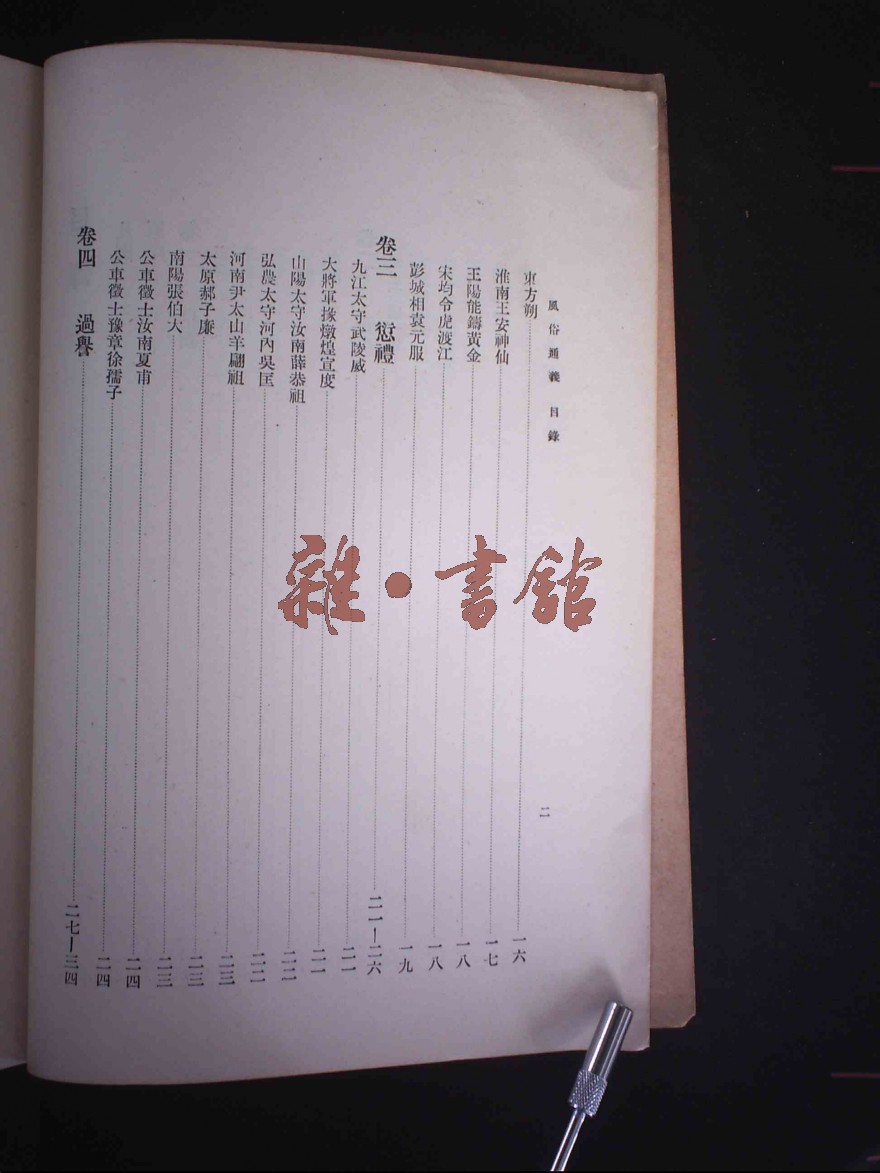 風俗通義 目錄
二
東方朔 一六
淮南王安神仙 一七
王陽能鑄黃金 一八
宋均令虎渡江 一八
彭城相袁元服 一九
卷三 愆禮 二一—二六
九江太守武陵威 二一
大將軍掾燉煌宣度 二一
山陽太守汝南薛恭祖 二二
弘農太守河內吳匡 二二
河南尹太山羊翩祖 二三
太原郝子廉 二三
南陽張伯大 二三
公車徵士汝南夏甫 二四
公車徵士豫章徐孺子 二四
卷四 過譽 二七—三四
雜·書館